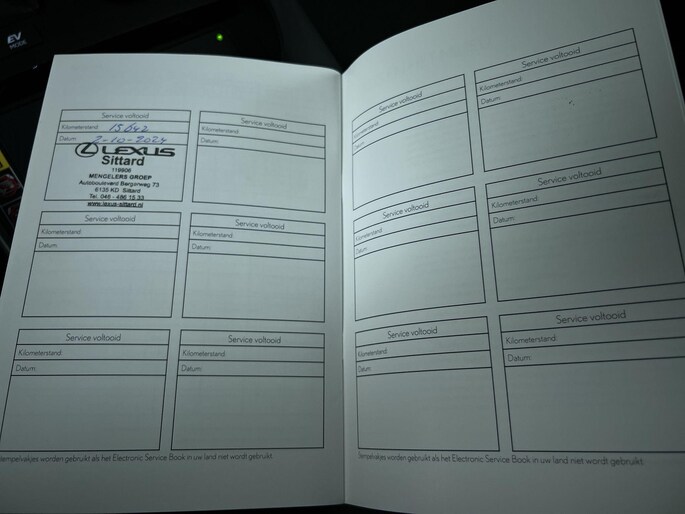 EV
MODE
Service voltooid
Kilometerstand: 15642
Datum: 2-10-2024
LEXUS
Sittard
119906
MENGELERS GROEP
Autoboulevard Bergerweg 73
6135 KD Sittard
Tel. 046 - 486 15 33
www.lexus-sittard.nl
Service voltooid
Kilometerstand:
Datum:
Service voltooid
Kilometerstand:
Datum:
Service voltooid
Kilometerstand:
Datum:
Service voltooid
Kilometerstand:
Datum:
Service voltooid
Kilometerstand:
Datum:
Stempelvakjes worden gebruikt als het Electronic Service Book in uw land niet wordt gebruikt.
Service voltooid
Kilometerstand:
Datum:
Service voltooid
Kilometerstand:
Datum:
Service voltooid
Kilometerstand:
Datum:
Service voltooid
Kilometerstand:
Datum:
Service voltooid
Kilometerstand:
Datum:
Service voltooid
Kilometerstand:
Datum:
Stempelvakjes worden gebruikt als het Electronic Service Book in uw land niet wordt gebruikt.